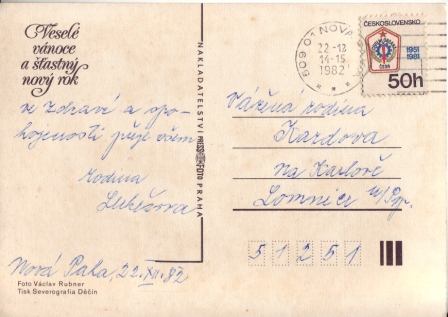 Veselé
vánoce
a šťastný
nový rok
ve zdraví a spo-
kojenosti přeje všem
rodina
Lukešova
Nová Paka, 22. XII. 82
Foto Václav Rubner
Tisk Severografia Děčín
NAKLADATELSTVÍ PRESSFOTO PRAHA
509 01 NOVÁ
22-12
14-15
1982
ČESKOSLOVENSKO
1951
1981
50h
Vážená rodina
Kardova
na Karlově
Lomnice n/Pop.
51251